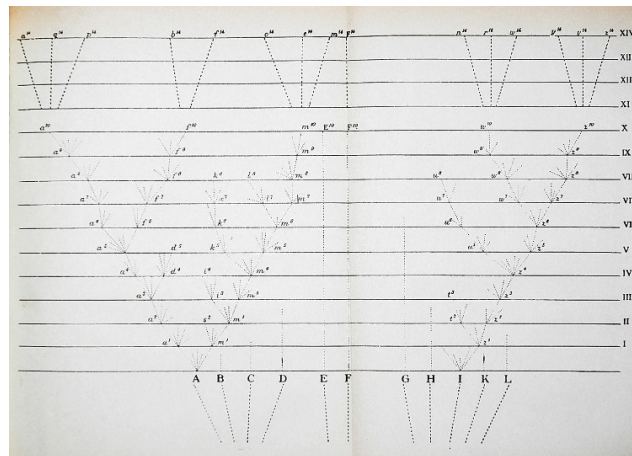 a¹⁴ q¹⁴ p¹⁴ b¹⁴ f¹⁴ o¹⁴ e¹⁴ m¹⁴ F¹⁴ n¹⁴ r¹⁴ w¹⁴ y¹⁴ v¹⁴ z¹⁴ XIV
XII
XII
XI
a¹⁰ f¹⁰ m¹⁰ E¹⁰ F¹⁰ w¹⁰ z¹⁰ X
a⁹ f⁹ m⁹ w⁹ z⁹ IX
a⁸ f⁸ k⁸ l⁸ m⁸ u⁸ w⁸ z⁸ VII
a⁷ f⁷ k⁷ l⁷ m⁷ u⁷ w⁷ z⁷ VI
a⁶ f⁶ k⁶ m⁶ u⁶ z⁶ VI
a⁵ d⁵ k⁵ m⁵ u⁵ z⁵ V
a⁴ d⁴ i⁴ m⁴ z⁴ IV
a³ i³ m³ t³ z³ III
a² s² m² t² z² II
a¹ m¹ z¹ I
A B C D E F G H I K L